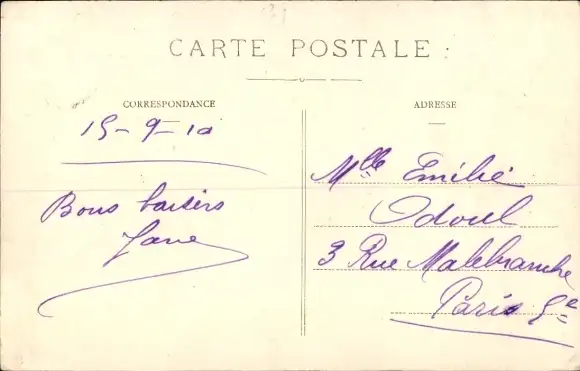 CARTE POSTALE :
CORRESPONDANCE
ADRESSE
15-9-10
Bons baisers
Jane
Mlle Emilie
Odoul
3 Rue Malebranche
Paris 5e